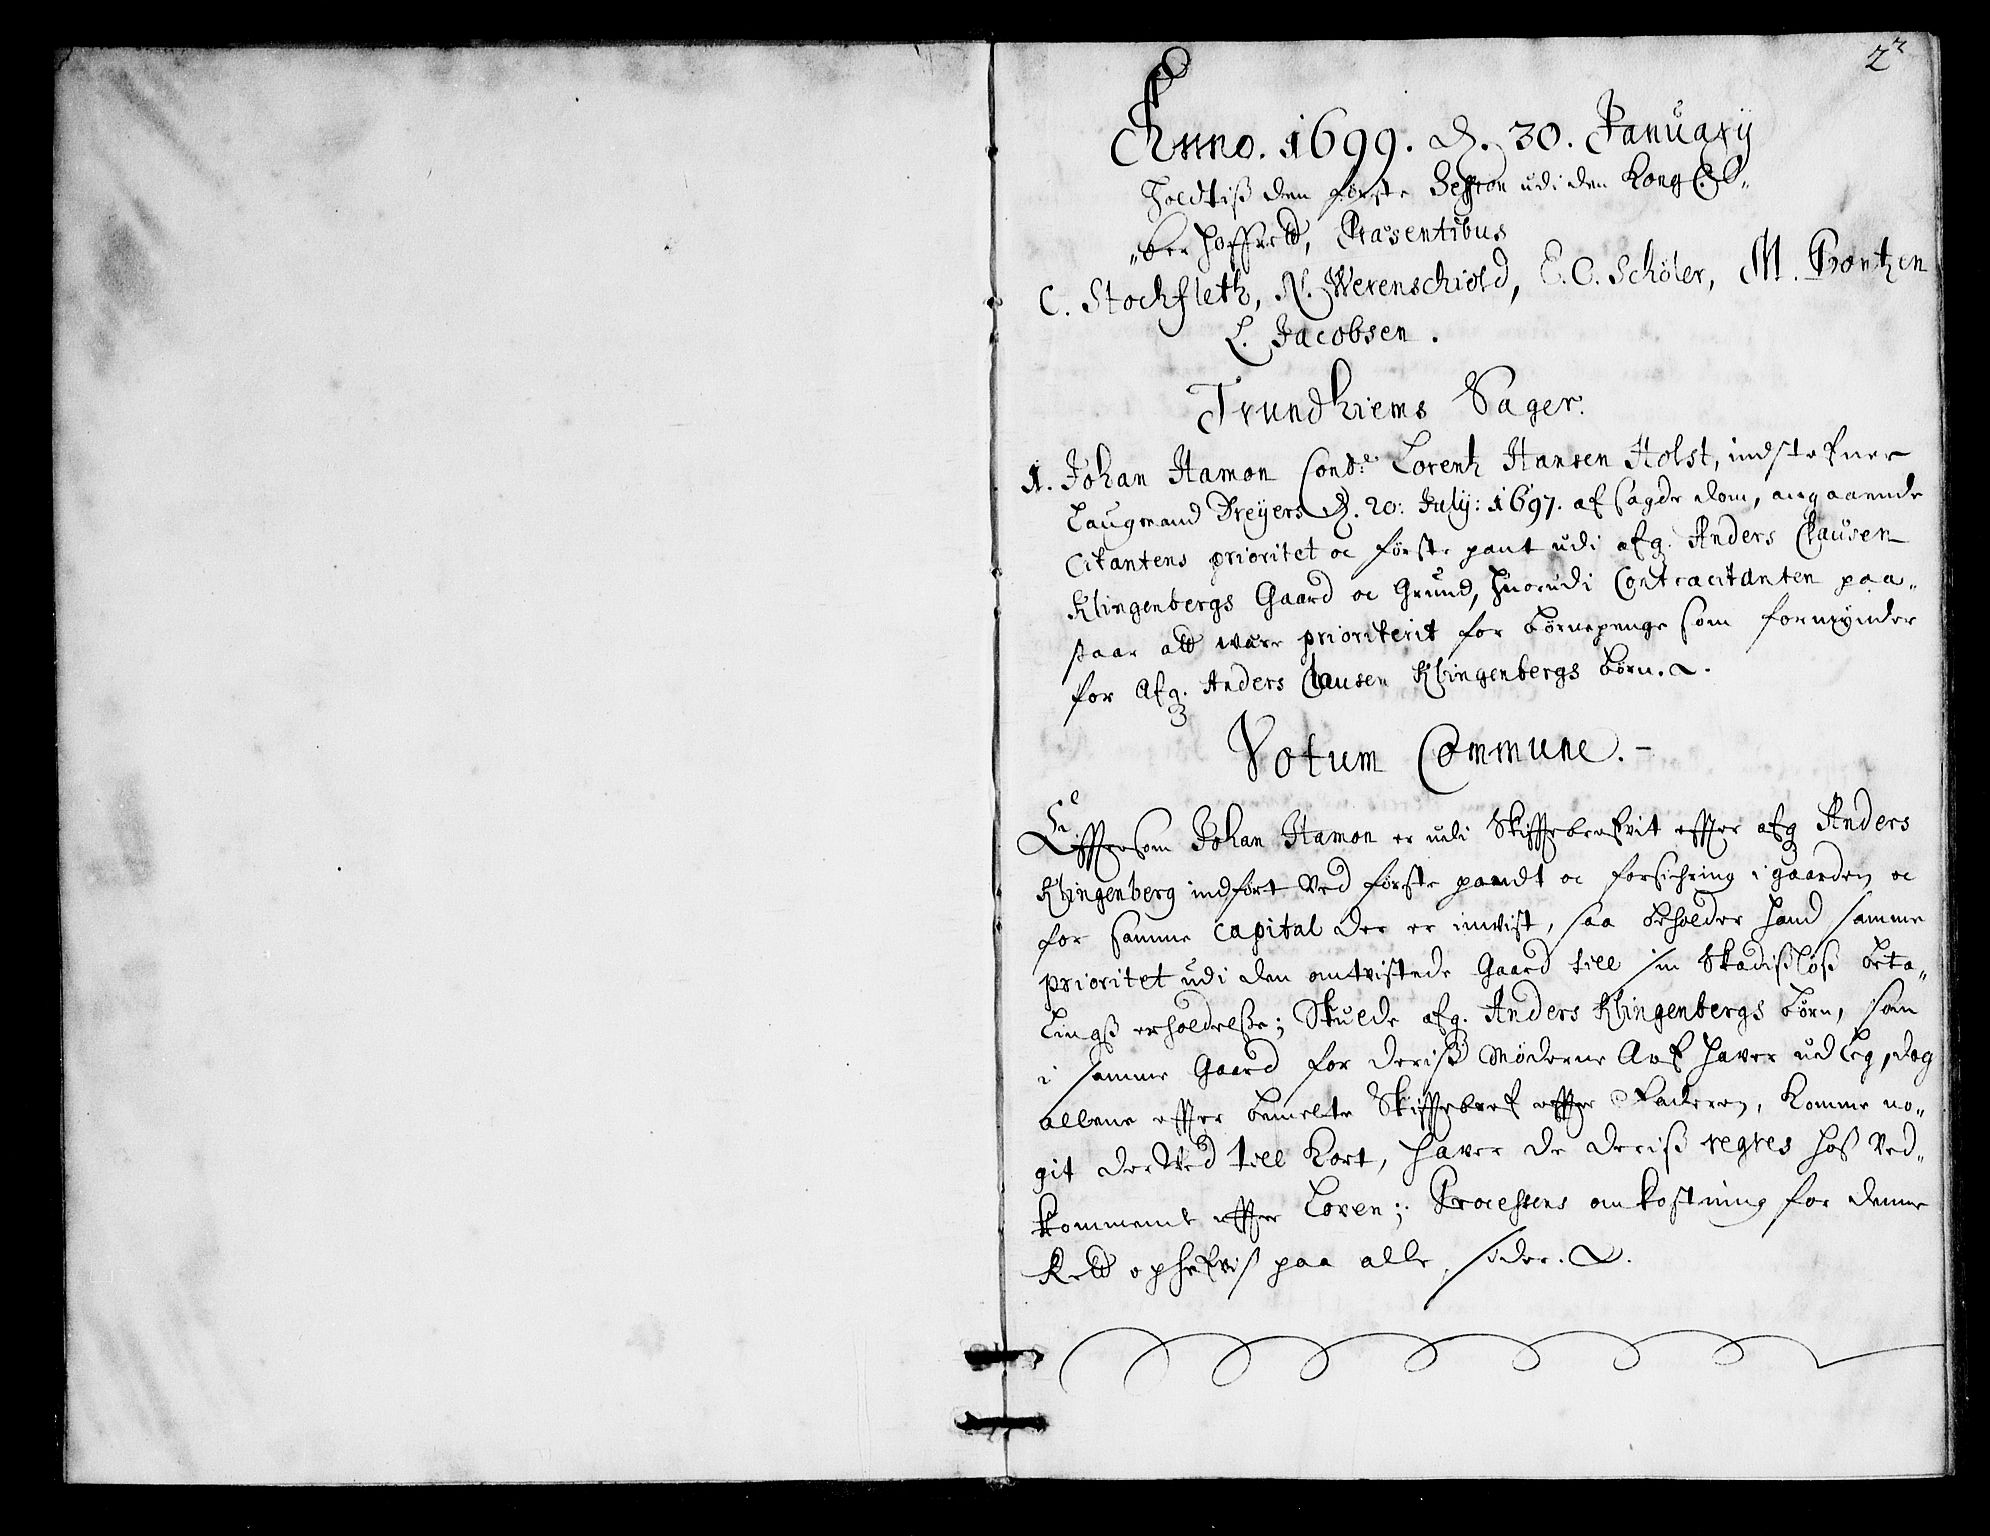 2
Anno. 1699. d. 30. Januarij
holdtiß den første Session udi den Kongl: O-
-ber hoffrett, Præsentibus
C. Stochfleth, N. Werenschiold, E. C. Schøler, M. Prontzen
L. Jacobsen.
Trundhiems Sager.
1. Johan Hamon Contr Lorentz Hansen Holst, indstefner
Laugmand Dreyers d. 20: July: 1697. afsagde dom, angaaende
Citantens prioritet oc første pant udi afg. Anders Clausen
Klingenbergs Gaard oc Grund, huorudi Contracitanten paa-
staar att være prioriterit for børnepenge som formynder
for Afg. Anders Clausen Klingenbergs børn.
Votum Commune.
Eftersom Johan Hamon er udi Skifftebrefvit effter afg Anders
Klingenberg indført ved første pandt oc forsichring i gaarden oc
for samme Capital der er invist, saa beholder hand samme
prioritet udi den omtvistede Gaard till sin skadisløß beta-
lingß erholdelße; Skulde afg. Anders Klingenbergs børn, som
i samme Gaard for deriß Møderne Arf haver udleg, dog
allene effter bemelte Skifftebref effter Faderen, komme no-
git derved till kort, haver de deriß regres hoß ved-
kommende effter Loven; Processens omkostning for denne
Rett ophefvis paa alle sider.